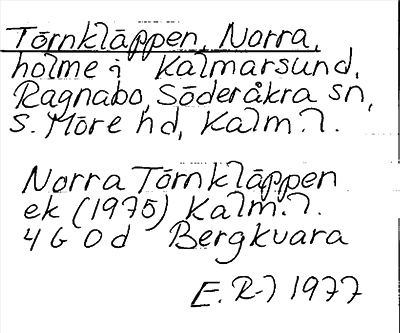 Törnkläppen, Norra,
holme i Kalmarsund,
Ragnabo, Söderåkra sn,
S. Möre hd, Kalm. l.
Norra Törnkläppen
ek (1975) Kalm. l.
4 G 0 d Bergkvara
E. R-) 1977